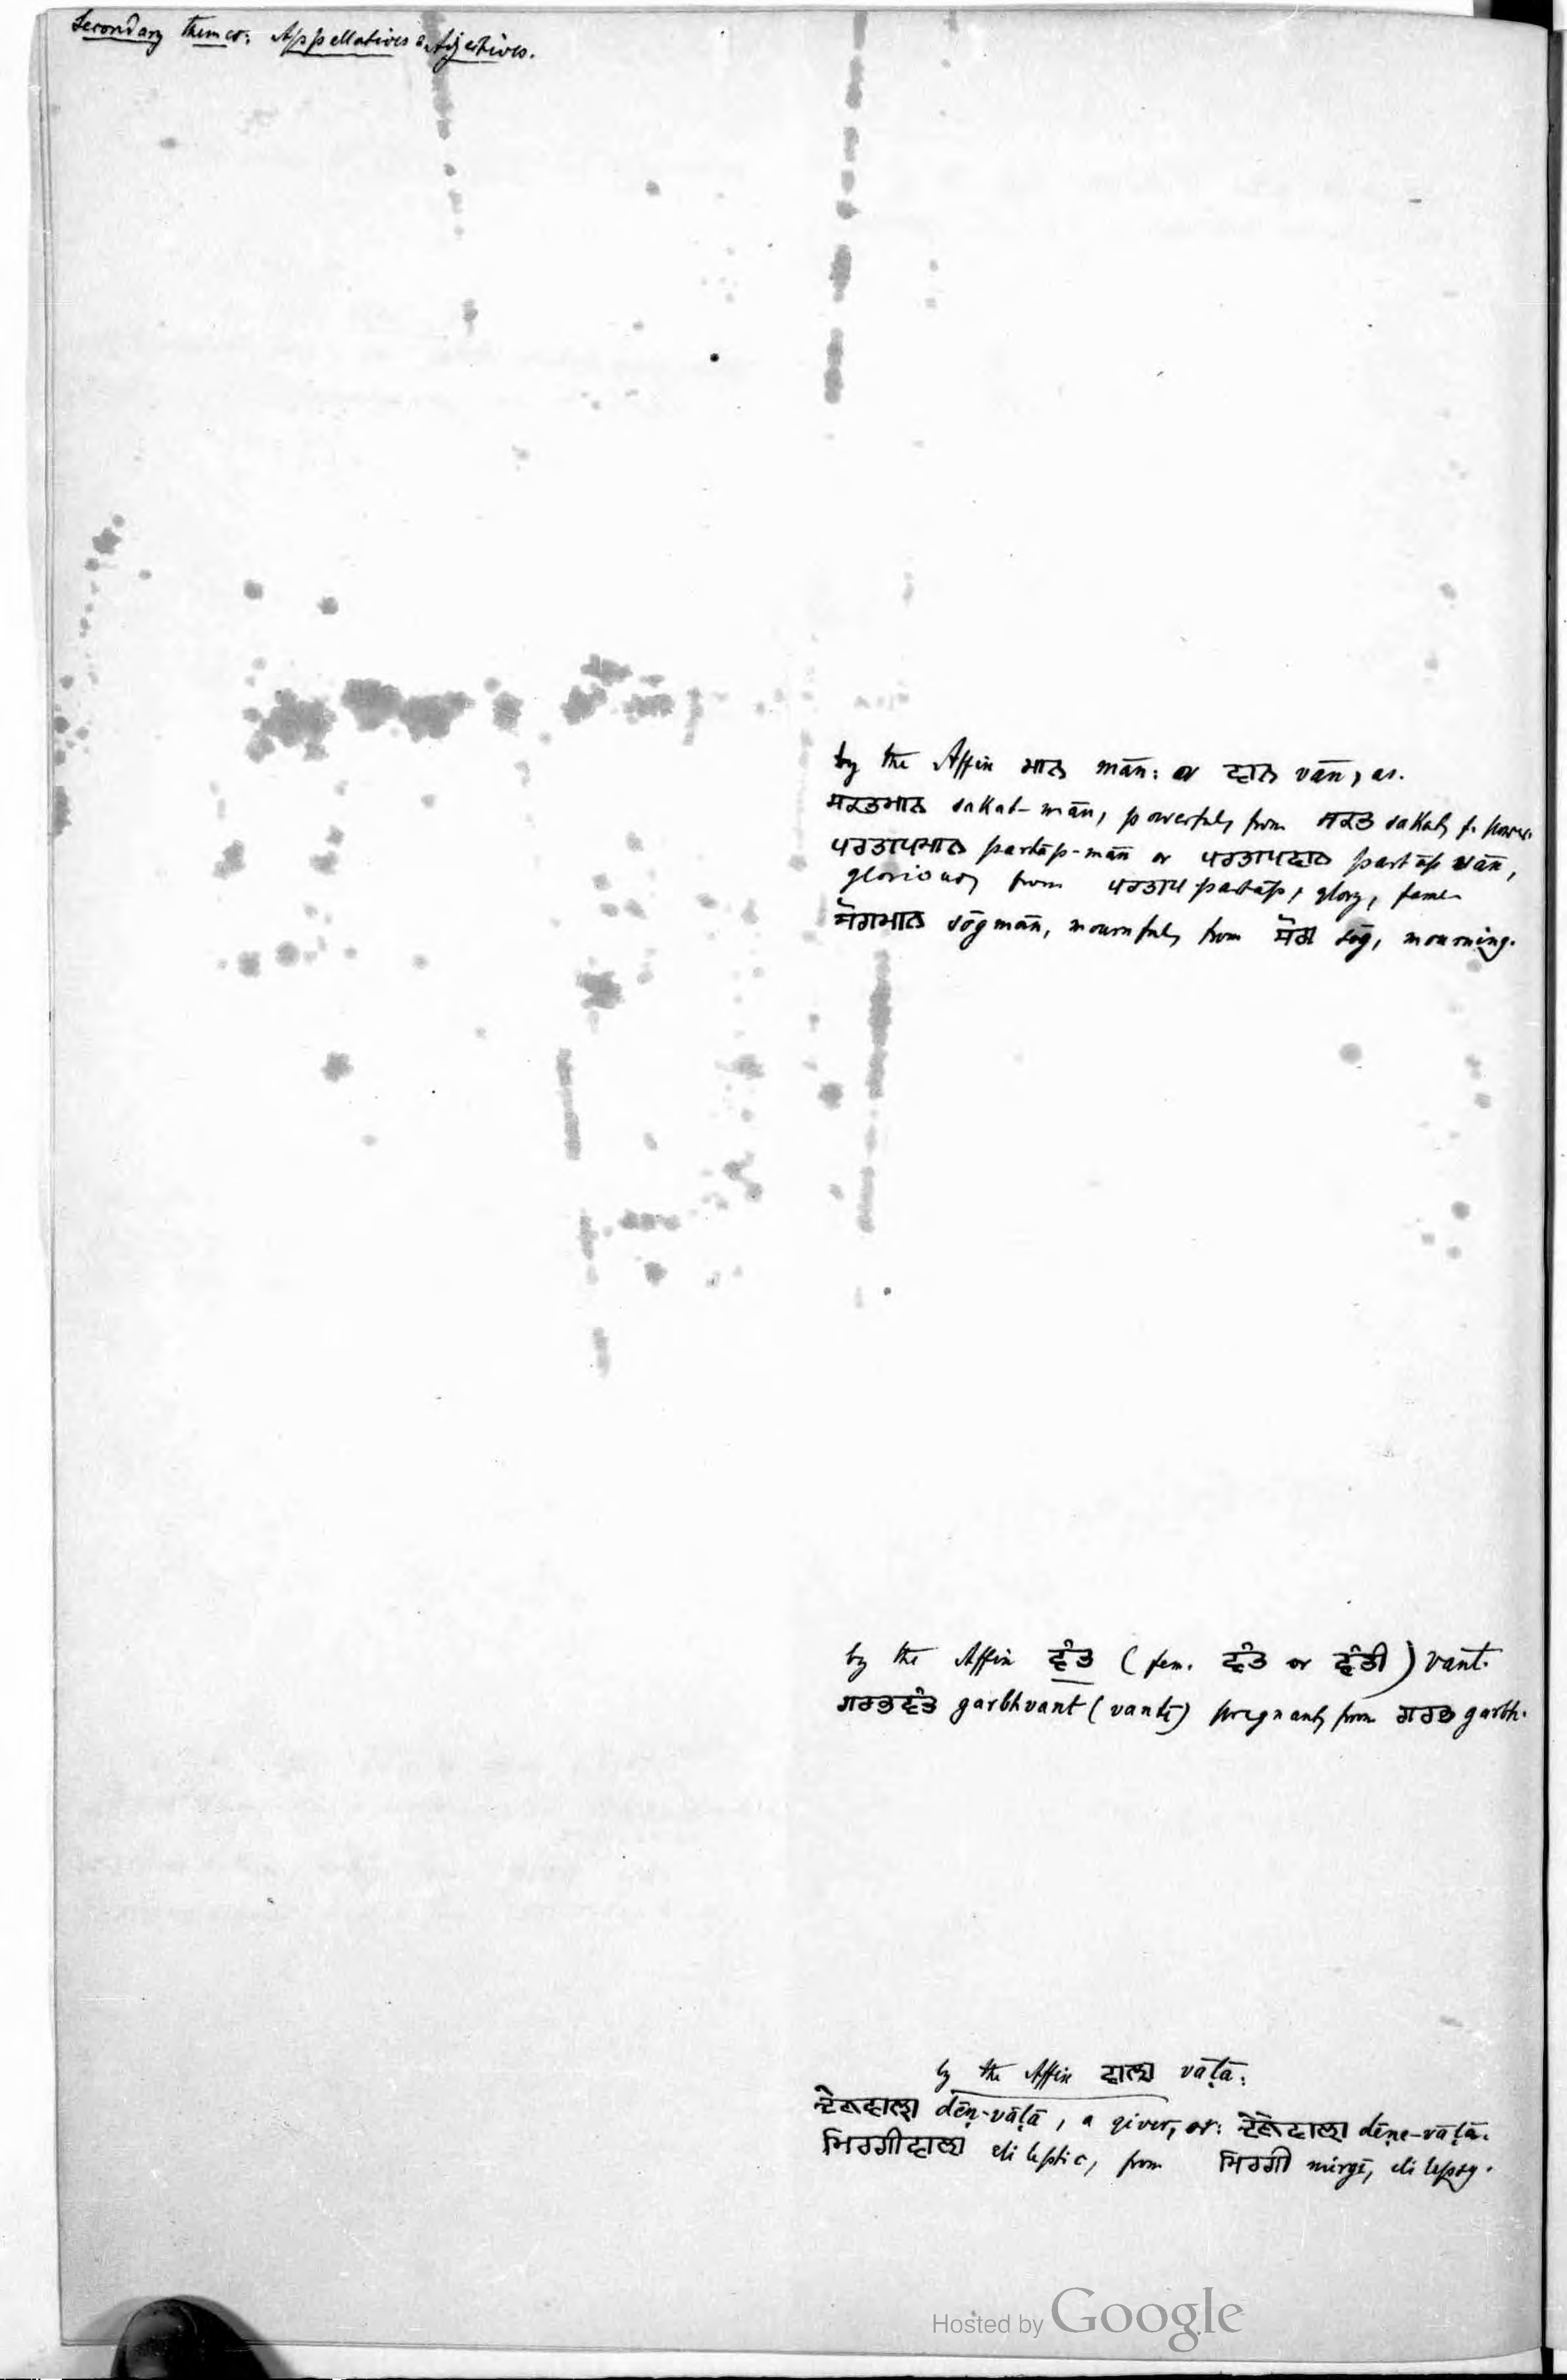 Secondary themes: Appellatives & Adjectives.
by the Affix ਮਾਨ mān: or ਵਾਨ vān, as.
ਸਕਤਮਾਨ sakat-mān, powerful, from ਸਕਤ sakat, f. power.
ਪਰਤਾਪਮਾਨ partāp-mān or ਪਰਤਾਪਵਾਨ partāp vān,
glorious, from ਪਰਤਾਪ partāp, glory, fame
ਸੋਗਮਾਨ sōgmān, mournful, from ਸੋਗ sōg, mourning.
by the Affix ਵੰਤ (fem. ਵੰਤ or ਵੰਤੀ) vant.
ਗਰਭਵੰਤ garbhvant (vantī) pregnant, from ਗਰਭ garbh.
by the Affix ਵਾਲਾ vāḷā:
ਦੇਣਵਾਲਾ dēṇ-vāḷā, a giver, or: ਦੇਣੇਵਾਲਾ dēṇe-vāḷā.
ਮਿਰਗੀਵਾਲਾ eli leptic, from ਮਿਰਗੀ mirgī, eli lepsy.
Hosted by Google